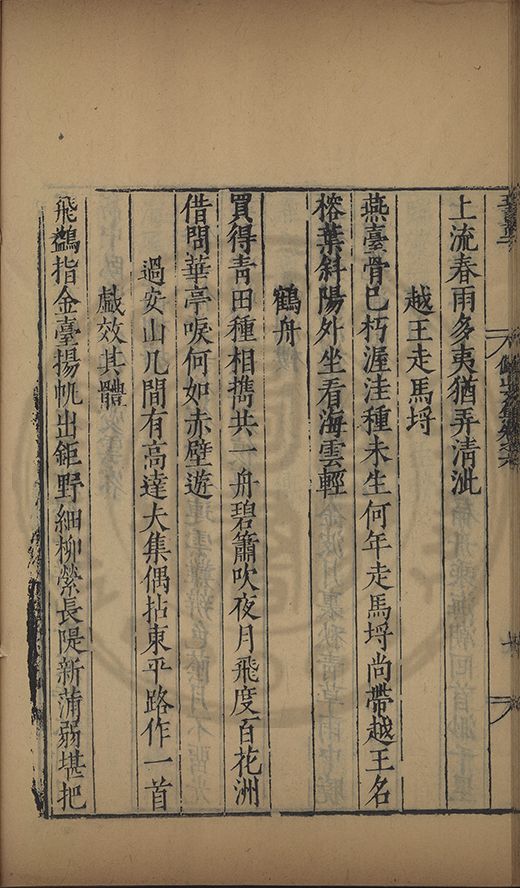 上流春雨多夷猶弄清泚
越王走馬埒
燕臺骨已朽渥洼種未生何年走馬埒尚帶越王名
榕葉斜陽外坐看海雲輕
鶴舟
買得青田種相攜共一舟碧簫吹夜月飛度百花洲
借問華亭唳何如赤壁遊
過安山几間有高達夫集偶拈東平路作一首
戲效其體
飛鷁指金臺揚帆出鉅野細柳縈長隄新蒲弱堪把